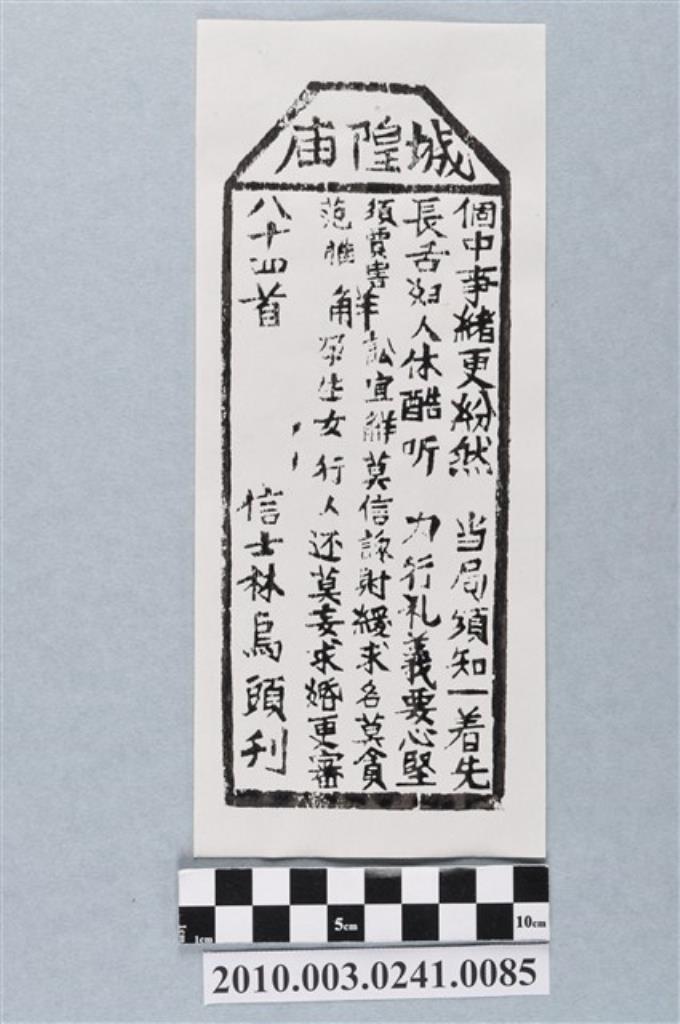 城隍庙
個中事緒更紛然 当局須知一着先
長舌妇人休酷听 力行礼義要心堅
須賈害 解 訟宜解莫信諒財緩求名莫貪
范雎 孕生女行人还莫妄求婚更審
八十四首 信士林烏頭刋
5cm
10cm
1cm
2010.003.0241.0085